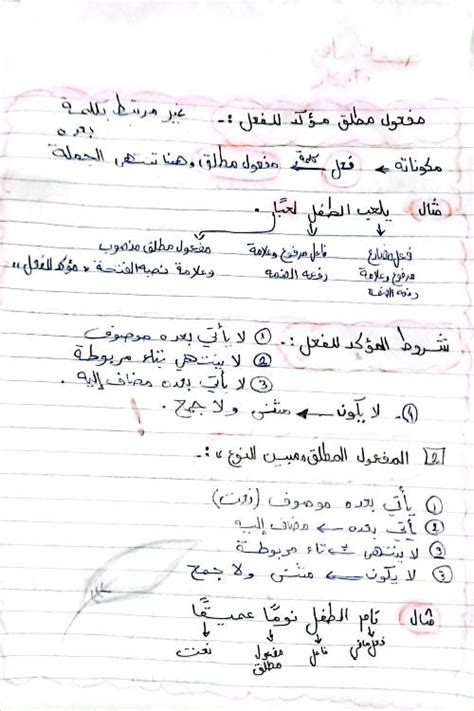 مفعول مطلق مؤكد للفعل :- غير مرتبط بكلمة بعده
مكوناته ← فعل كلمة ← مفعول مطلق، وهنا تنتهي الجملة
مثال يلعب الطفل لعبًا.
فعل مضارع مرفوع وعلامة رفعه الضمة
فاعل مرفوع وعلامة رفعه الضمه
مفعول مطلق منصوب وعلامة نصبه الفتحة "مؤكد للفعل"
شروط المؤكد للفعل :- ① لا يأتي بعده موصوف
② لا ينتهي بتاء مربوطة
③ لا يأتي بعده مضاف إليه.
④- لا يكون ← مثنى ولا جمع.
2 المفعول المطلق "مبين للنوع" :-
① يأتي بعده موصوف (نعت)
② يأتي بعده ← مضاف إليه
③ لا ينتهي ← تاء مربوطة
③ لا يكون ← مثنى ولا جمع
مثال نام الطفل نومًا عميقًا
فعل ماضي فاعل مفعول مطلق نعت